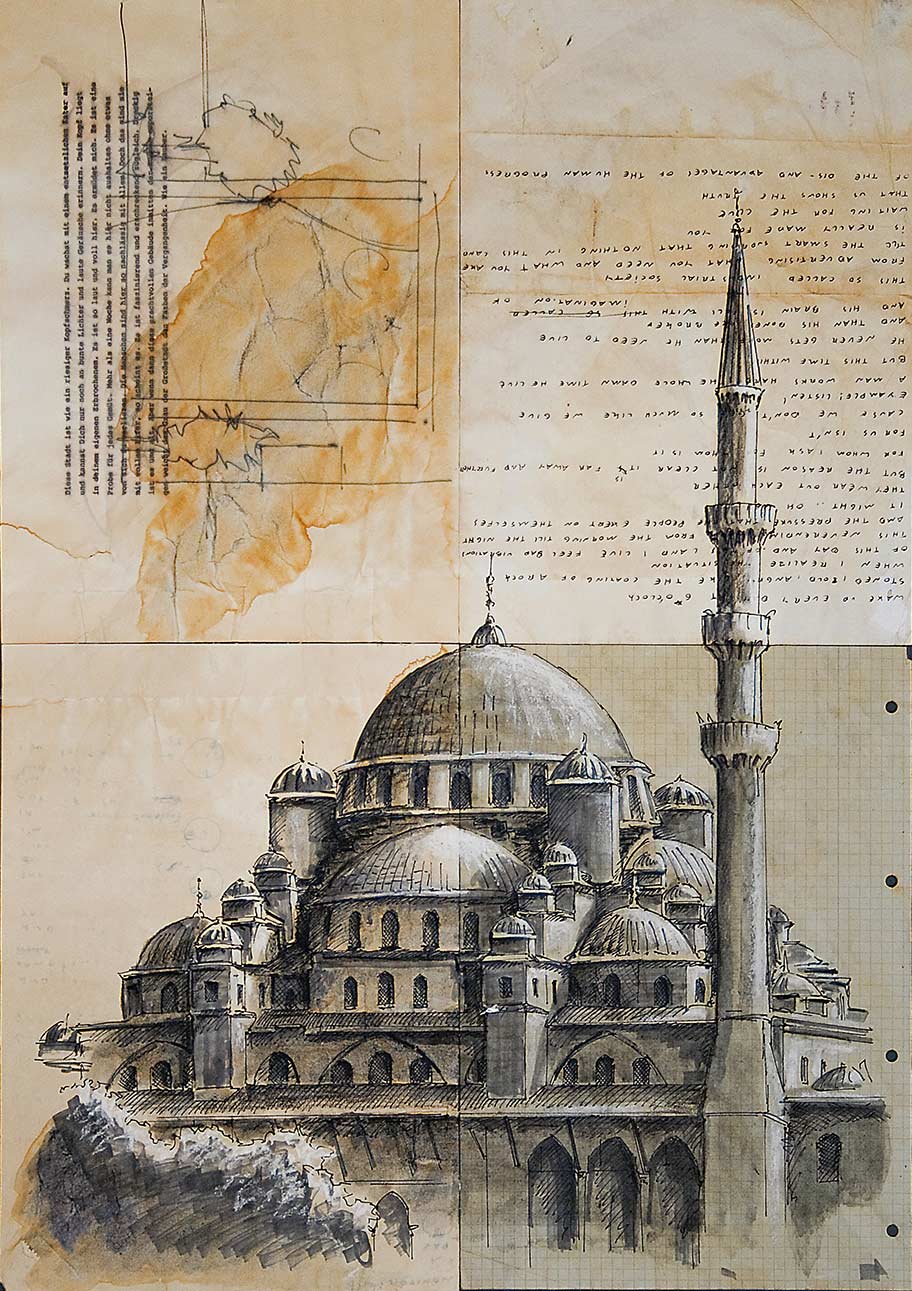 Diese Stadt ist wie ein riesiger Kopfschmerz. Du wachst mit einem entsetzlichen Kater auf
und kannst Dich nur noch an bunte Lichter und laute Geräusche erinnern. Dein Kopf liegt
in deinem eigenen Erbrochenem. Es ist so laut und voll hier. Es ermüdet mich. Es ist eine
Probe für jedes Gemüt. Mehr als eine Woche kann man es hier nicht aushalten ohne etwas
von sich zu verlieren. Die Menschen sind hier so nachlässig mit allem. Doch das sind sie
mit vollem Eifer, so scheint es. Es ist faszinierend und erschreckend zugleich. Dreckig
ist es und alt. Nur wenn dann diese prachtvollen Gebäude inmitten
gen weicht das Grau der Großstadt den Farben der Vergangenheit. Wie ein Zauber.
WAKE UP EVERY DAY AT 6 O'CLOCK
STONED LIKE THE COATING OF A ROCK
WHEN I REALIZE SITUATION
OF THIS DAY AND LAND I LIVE FEEL BAD VIBRATIONS
THIS NEVERENDING FROM THE MORNING TILL THE NIGHT
AND THE PRESSURE THAT PEOPLE EXERT ON THEMSELFES
IT MIGHT .. OH
THEY WEAR OUT EACH OTHER
BUT THE REASON IS NOT CLEAR IT IS FAR AWAY AND FURTHER
FOR WHOM I ASK FOR WHOM IS IT
FOR US ISN'T
CAUSE WE DON'T SO MUCH LIKE WE GIVE
EXAMPLE! LISTEN!
A MAN WORKS HARD THE WHOLE DAMN TIME HE LIVE
BUT THIS TIME WITH
HE NEVER GETS MORE THAN HE NEED TO LIVE
AND THAN HIS BONES ARE BROKEN
AND HIS BRAIN IS FULL WITH THIS SO CALLED
IMAGINATION OF
THIS SO CALLED INDUSTRIAL SOCIETY
FROM ADVERTISING WHAT YOU NEED AND WHAT YOU ARE
TILL THE SMART THAT NOTHING IN THIS LAND
IS REALLY MADE FOR YOU
WAITING FOR THE CLUE
THAT US SHOWS THE TRUTH
OF THE DIS- AND ADVANTAGES OF THE HUMAN PROGRESS